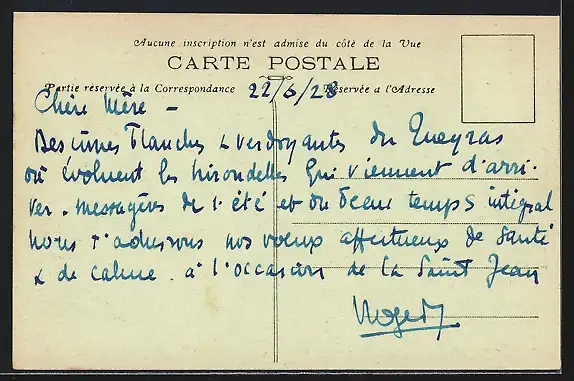 Aucune inscription n'est admise du côté de la Vue
CARTE POSTALE
Partie réservée à la Correspondance
Réservée a l'Adresse
22/6/28
Chère Mère –
Des cimes blanches & verdoyantes du Queyras
où évoluent les hirondelles qui viennent d'arri-
ver. messagères de l'été et du beau temps intégral
nous t'adressons nos voeux affectueux de santé
& de calme. à l'occasion de la Saint Jean
Roger